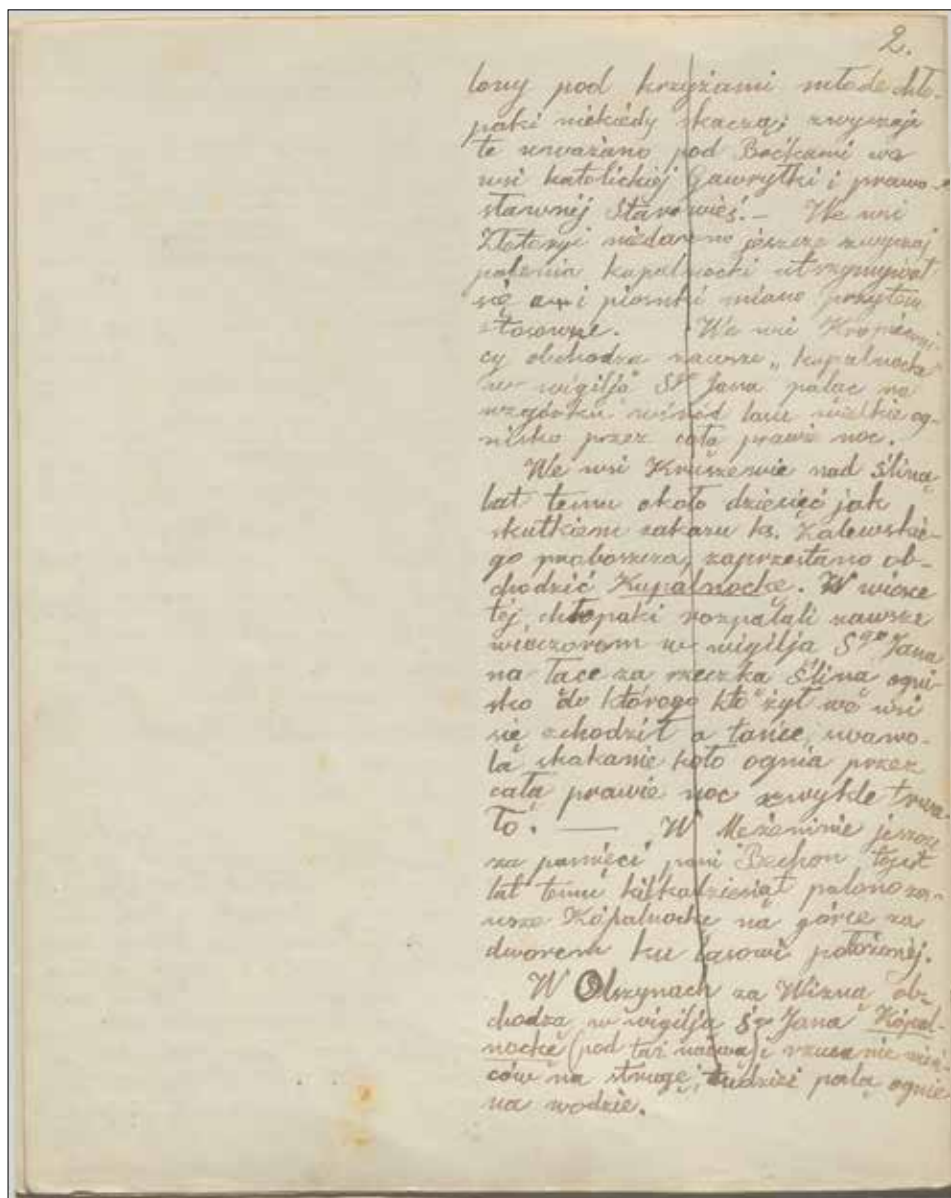 2.
lony pod krzyżami młode chło-
paki niekiedy skaczą; zwyczaje
te uważano pod Boćkami we
wsi katolickiéj Gawryłki i prawo-
sławnéj Starowieś. – We wsi
Złotoryi niedawno jeszcze zwyczaj
palenia kupalnocki utrzymywał
się i piosnki miano przytem
stosowne. We wsi Kropiewni-
cy obchodzą zawsze „kupalnocka"
w wigilją Sgo Jana paląc na
wzgórku wśród lasu wielkie og-
nisko przez całą prawie noc.
We wsi Kruszewie nad Śliną
lat temu około dziesięć jak
skutkiem zakazu ks. Zalewskie-
go proboszcza, zaprzestano ob-
chodzić Kupalnockę. W wiosce
téj chłopaki rozpalali zawsze
wieczorem w wigilją Sgo Jana
na łące za rzeczką Śliną ogni-
sko do którego kto żył we wsi
się schodził a tańce, swawo-
la skakanie koło ognia przez
całą prawie noc zwykle trwa
ło. — W Mężeninie jeszcze
za pamięci pani Bechon to jest
lat temu kilkadziesiąt palono zaw-
sze Kópalnockę na górce za
dworem ku lasowi położonéj.
W Olszynach za Wizną ob-
chodzą w wigilją Sgo Jana Kópal-
nockę (pod taż nazwą) i rzucanie wian-
ców na strugę, tudzież palą ognie
na wodzie.